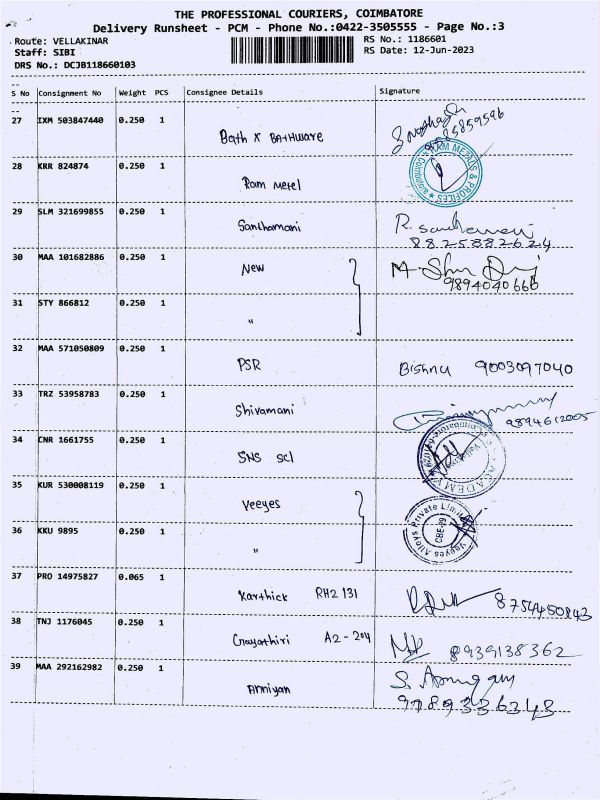 THE PROFESSIONAL COURIERS, COIMBATORE
Delivery Runsheet - PCM - Phone No.:0422-3505555 - Page No.:3
Route: VELLAKINAR
Staff: SIBI
DRS No.: DCJB118660103
RS No.: 1186601
RS Date: 12-Jun-2023
S No Consignment No Weight PCS Consignee Details Signature
27 IXM 503847440 0.250 1
Bath X BATHWARE
28 KRR 824874 0.250 1
Ram Metel
29 SLM 321699855 0.250 1
Santhamani R. santhamani
8825882624
30 MAA 101682886 0.250 1
New
9894040666
31 STY 866812 0.250 1
"
32 MAA 571050809 0.250 1
PSR Bishnu 9003097040
33 TRZ 53958783 0.250 1
Shivamani 9894612005
34 CNR 1661755 0.250 1
SNS scl ACADEMY
35 KUR 530008119 0.250 1
Veeyes
Veeyes Alloys Private Limited
CBE-29
36 KKU 9895 0.250 1
"
37 PRO 14975827 0.065 1
Karthick RH2 131 8754450843
38 TNJ 1176045 0.250 1
Gayathiri A2-204 8939138362
39 MAA 292162982 0.250 1
Anniyan S. Arumugam
9789336343